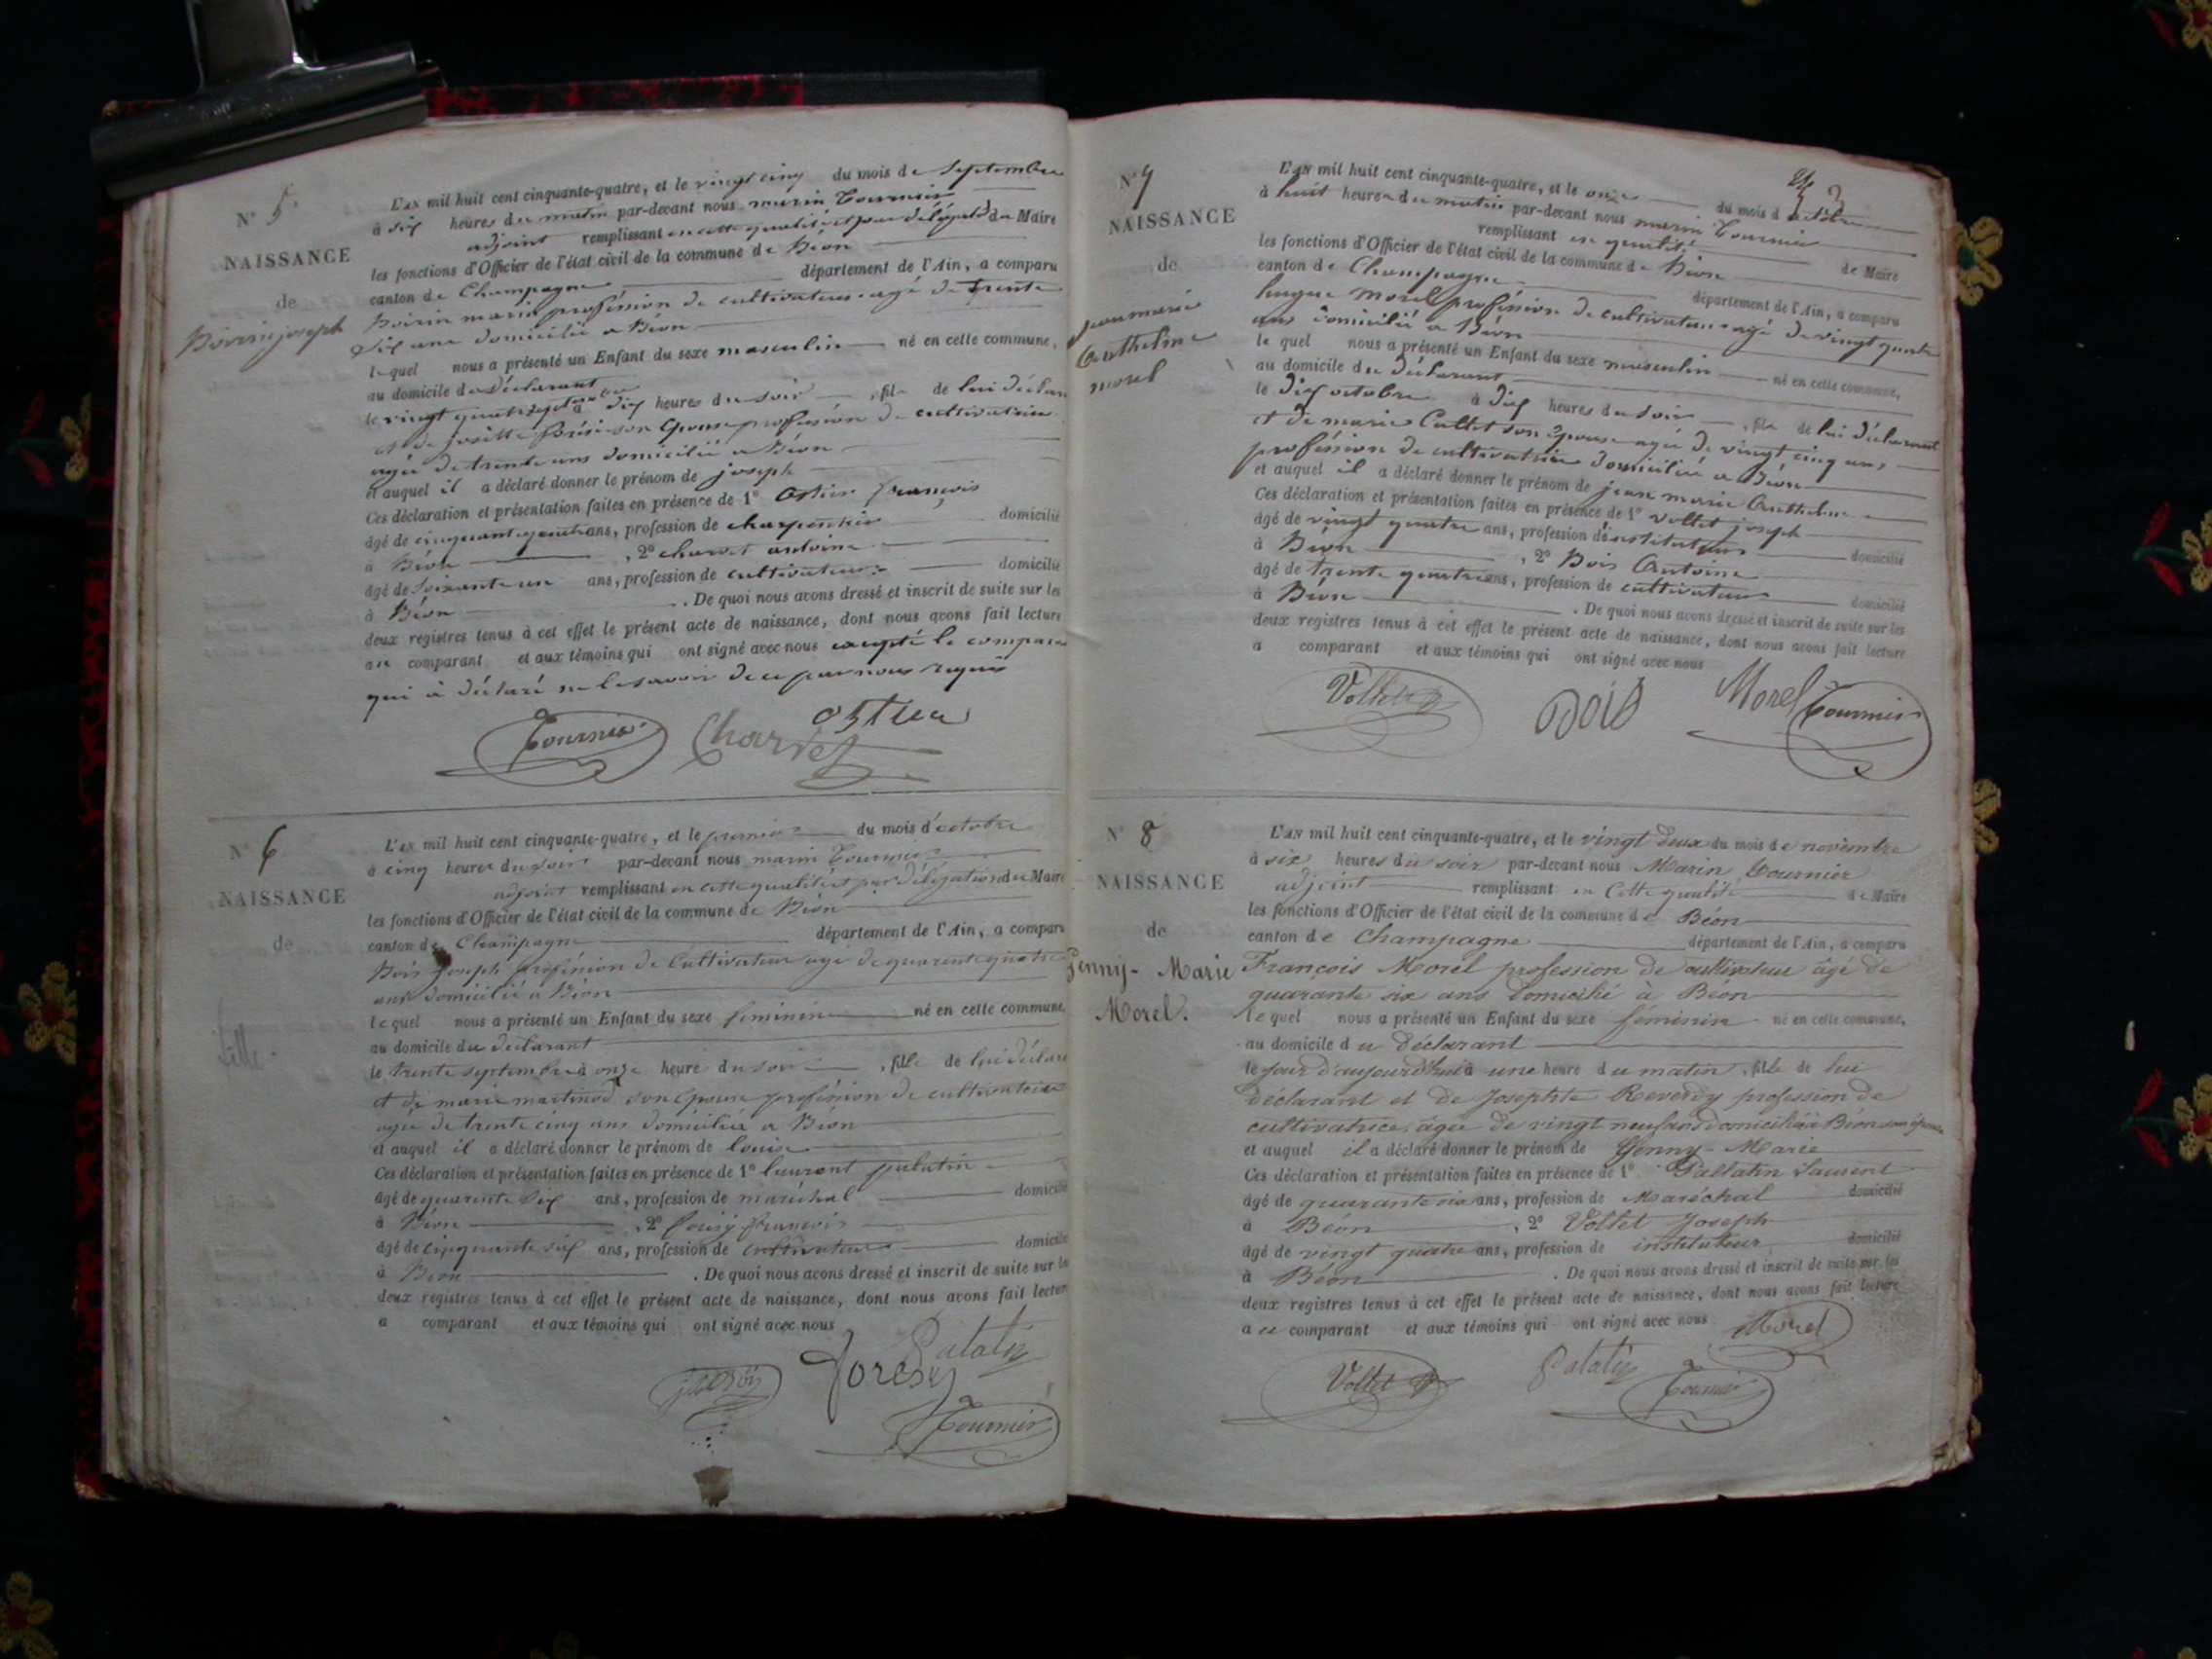 N° 5
NAISSANCE
de
joseph
L'AN mil huit cent cinquante-quatre, et le vingt cinq du mois de Septembre
à six heures du matin par-devant nous marin Tournier
adjoint remplissant en cette qualité et par délégation du Maire
les fonctions d'Officier de l'état civil de la commune de Béon
canton de Champagne département de l'Ain, a comparu
marin profession de cultivateur agé de trente
six ans domicilié a Béon
lequel nous a présenté un Enfant du sexe masculin né en cette commune,
au domicile du déclarant
le vingt quatre septembre à dix heures du soir, fils de lui déclarant
et de josette son épouse profession de cultivatrice
agée de trente ans domicilié a Béon
et auquel il a déclaré donner le prénom de joseph
Ces déclaration et présentation faites en présence de 1° françois
âgé de cinquante quatre ans, profession de charpentier domicilié
à Béon, 2° charvet antoine
âgé de soixante un ans, profession de cultivateur domicilié
à Béon. De quoi nous avons dressé et inscrit de suite sur les
deux registres tenus à cet effet le présent acte de naissance, dont nous avons fait lecture
au comparant et aux témoins qui ont signé avec nous excepté le comparant
qui à déclaré ne le savoir de ce par nous requis
Tournier Charvet
N° 6
NAISSANCE
de
L'AN mil huit cent cinquante-quatre, et le premier du mois d'octobre
à cinq heures du soir par-devant nous marin Tournier
adjoint remplissant en cette qualité et par délégation du Maire
les fonctions d'Officier de l'état civil de la commune de Béon
canton de Champagne département de l'Ain, a comparu
Bois joseph profession de Cultivateur agé de quarente quatre
ans domicilié a Béon
lequel nous a présenté un Enfant du sexe feminin né en cette commune,
au domicile du déclarant
le trente septembre à onze heure du soir, fille de lui déclarant
et de marie martinod son épouse profession de cultivatrice
agée de trente cinq ans domiciliée a Béon
et auquel il a déclaré donner le prénom de louise
Ces déclaration et présentation faites en présence de 1° laurent palatin
âgé de quarente six ans, profession de maréchal domicilié
à Béon, 2° françois
âgé de cinquante six ans, profession de cultivateur domicilié
à Béon. De quoi nous avons dressé et inscrit de suite sur les
deux registres tenus à cet effet le présent acte de naissance, dont nous avons fait lecture
a comparant et aux témoins qui ont signé avec nous
Palatin
Tournier
N° 7
NAISSANCE
de
jean marie
Anthelme
morel
L'AN mil huit cent cinquante-quatre, et le onze du mois d'octobre
à huit heures du matin par-devant nous marin Tournier
remplissant en qualité de Maire
les fonctions d'Officier de l'état civil de la commune de Béon
canton de Champagne département de l'Ain, a comparu
hugue morel profession de cultivateur agé de vingt quatre
ans domicilié a Béon
lequel nous a présenté un Enfant du sexe masculin né en cette commune,
au domicile du déclarant
le dix octobre à dix heures du soir, fils de lui déclarant
et de marie Cullet son épouse agée de vingt cinq ans
profession de cultivatrice domiciliée a Béon
et auquel il a déclaré donner le prénom de jean marie Anthelme
Ces déclaration et présentation faites en présence de 1° voltet joseph
âgé de vingt quatre ans, profession d'instituteur domicilié
à Béon, 2° Bois Antoine
âgé de trente quatre ans, profession de cultivateur domicilié
à Béon. De quoi nous avons dressé et inscrit de suite sur les
deux registres tenus à cet effet le présent acte de naissance, dont nous avons fait lecture
a comparant et aux témoins qui ont signé avec nous
Voltet Bois Morel Tournier
N° 8
NAISSANCE
de
Jenny-Marie
Morel.
L'AN mil huit cent cinquante-quatre, et le vingt deux du mois de novembre
à six heures du soir par-devant nous Marin Tournier
adjoint remplissant en cette qualité de Maire
les fonctions d'Officier de l'état civil de la commune de Béon
canton de Champagne département de l'Ain, a comparu
François Morel profession de cultivateur âgé de
quarante six ans domicilié à Béon
lequel nous a présenté un Enfant du sexe féminin né en cette commune,
au domicile du déclarant
le jour d'aujourd'hui à une heure du matin, fille de lui
déclarant et de Josephte Reverdy profession de
cultivatrice, âgée de vingt neuf ans domiciliée à Béon son épouse
et auquel il a déclaré donner le prénom de Jenny-Marie
Ces déclaration et présentation faites en présence de 1° Pallatin Laurent
âgé de quarante six ans, profession de Maréchal domicilié
à Béon, 2° Voltet Joseph
âgé de vingt quatre ans, profession de instituteur domicilié
à Béon. De quoi nous avons dressé et inscrit de suite sur les
deux registres tenus à cet effet le présent acte de naissance, dont nous avons fait lecture
a ce comparant et aux témoins qui ont signé avec nous Morel
Voltet Palatin Tournier